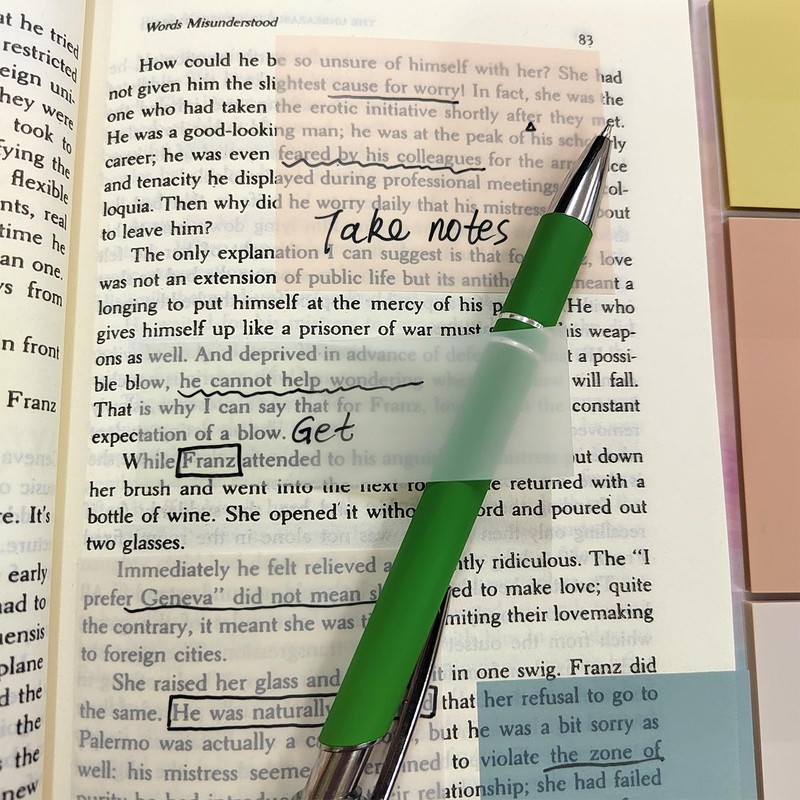 Words Misunderstood
83
How could he be so unsure of himself with her? She had
not given him the slightest cause for worry! In fact, she was the
one who had taken the erotic initiative shortly after they met.
He was a good-looking man; he was at the peak of his
career; he was even feared by his colleagues for the
and tenacity he displayed during professional meetings
loquia. Then why did he worry daily that his mistress
to leave him?
Take notes
The only explanation I can suggest is that love
was not an extension of public life but its meant a
longing to put himself at the mercy of his He who
gives himself up like a prisoner of war must weap-
ons as well. And deprived in advance of a possi-
ble blow, he cannot help wondering will fall.
That is why I can say that for Franz, the constant
expectation of a blow. Get
While Franz attended to his down
her brush and went into the next returned with a
bottle of wine. She opened it and poured out
two glasses.
Immediately he felt relieved ridiculous. The “I
prefer Geneva” did not mean to make love; quite
the contrary, it meant she was their lovemaking
to foreign cities.
She raised her glass and it in one swig. Franz did
the same. He was naturally that her refusal to go to
Palermo was actually a but he was a bit sorry as
well: his mistress to violate the zone of
she had failed
at he tried
restricted
eign uni-
hey were
took to
fying the
flexible
nts, real
time he
an one.
ys from
n front
Franz
re. It's
early
had to
plane
d the
the
the
new